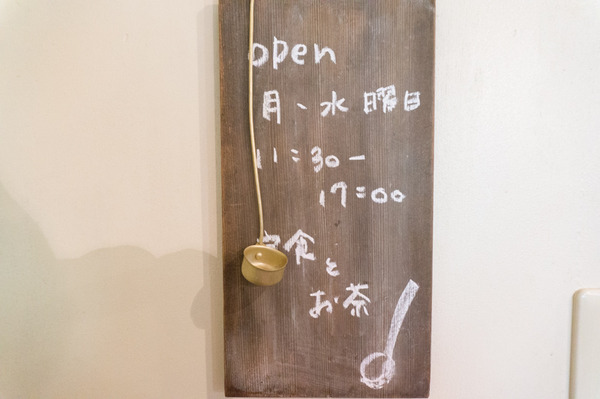 open
月、水曜日
11:30-
17:00
食
と
お茶